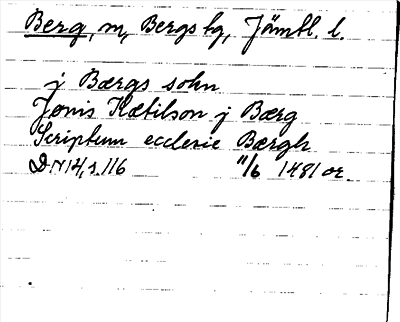 Berg, m, Bergs tg, Jämtl. l.
j Bærgs sokn
Jønis Kætilson j Bærg
Scriptum ecclesie Bærgh
DN 14, s. 116 11/6 1481 or.